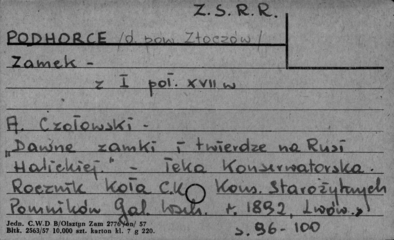 Z.S.R.R.
PODHORCE /d. pow. Złoczów/
Zamek -
z I poł. XVII w
A. Czołowski -
"Dawne zamki i twierdze na Rusi
Halickiej." - Teka Konserwatorska.
Rocznik koła C.K. Kons. Starożytnych
Pomników Gal. Wsch. r. 1892, Lwów.
s. 96-100
Jedn. C.W.D B/Olsztyn Zam 2776 57
Bltk. 2563/57 10.000 szt. karton kl. 7 g 220.